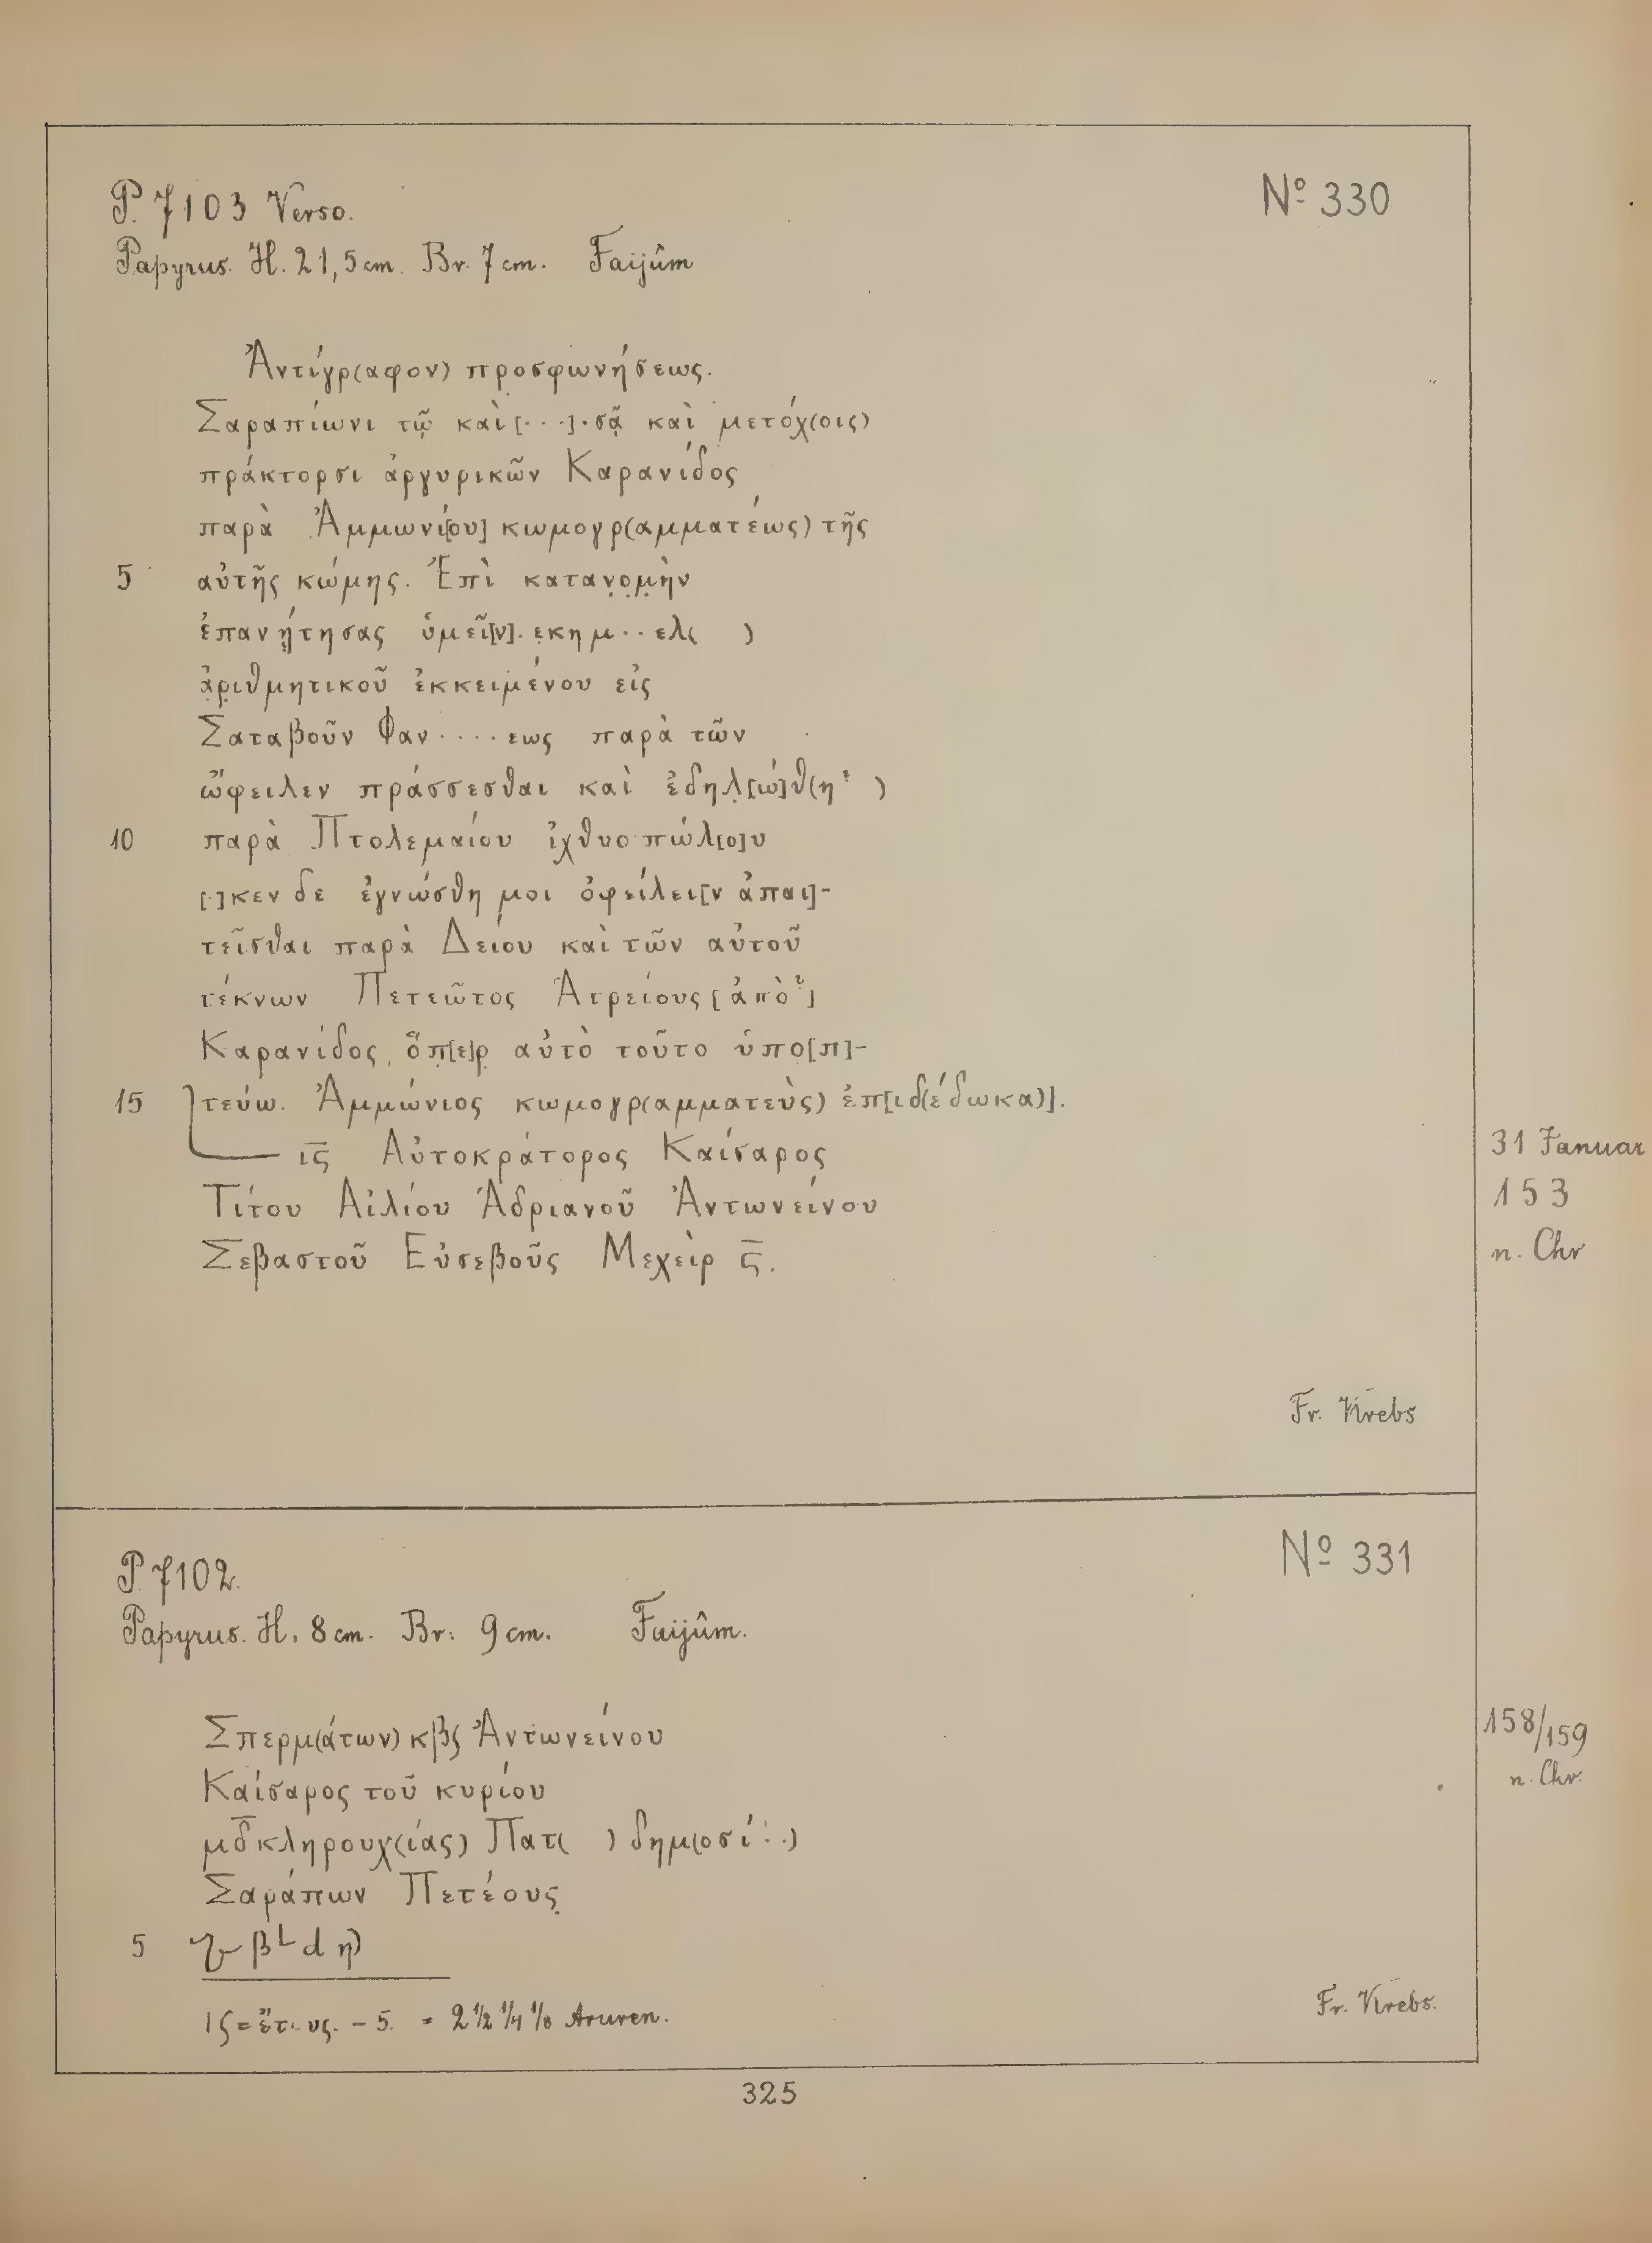 P. 7103 Verso. Nº 330
Papyrus. H. 21,5 cm. Br. 7 cm. Faijûm
Ἀντίγρ(αφον) προσφωνήσεως.
Σαραπίωνι τῷ καὶ [...].σᾷ καὶ μετόχ(οις)
πράκτορσι ἀργυρικῶν Καρανίδος
παρὰ Ἀμμωνί[ου] κωμογρ(αμματέως) τῆς
5 αὐτῆς κώμης. Ἐπὶ καταν̣ο̣μ̣ὴν
ἐπανῄτησας ὑμεῖ[ν]. ε̣κημ..ελ( )
ἀ̣ρ̣ιθμητικοῦ ἐκκειμένου εἰς
Σαταβοῦν Φαν....εως παρὰ τῶν
ὤφειλεν πράσσεσθαι καὶ ἐδηλ̣[ώ]θ(η? )
10 παρὰ Πτολεμαίου ἰχθυοπώλ[ο]υ
[.]κεν δε ἐγνώσθη μοι ὀφείλει[ν ἀπαι]-
τεῖσθαι παρὰ Δείου καὶ τῶν αὐτοῦ
τέκνων Πετεῶτος Ἀτρείους [ἀπὸ?]
Καρανίδος, ὅπ̣[ε]ρ̣ αὐτὸ τοῦτο ὑπο̣[π]-
15 τεύω. Ἀμμώνιος κωμογρ(αμματεὺς) ἐπ[ιδ(έδωκα)].
ιϛ̅ Αὐτοκράτορος Καίσαρος 31 Januar
Τίτου Αἰλίου Ἁδριανοῦ Ἀντωνείνου 153
Σεβαστοῦ Εὐσεβοῦς Μεχεὶρ ϛ̅. n. Chr
Fr. Krebs
P. 7102. Nº 331
Papyrus. H. 8 cm. Br. 9 cm. Faijûm.
Σπερμ(άτων) κβϛ Ἀντωνείνου 158/159
Καίσαρος τοῦ κυρίου n. Chr.
μδ̅ κληρουχ(ίας) Πατ( ) δημ(οσί..)
Σαράπων Πετέους̣
5 β L d η
1 ϛ = ἔτους. – 5. = 2 1/2 1/4 1/8 Aruren.
Fr. Krebs.
325